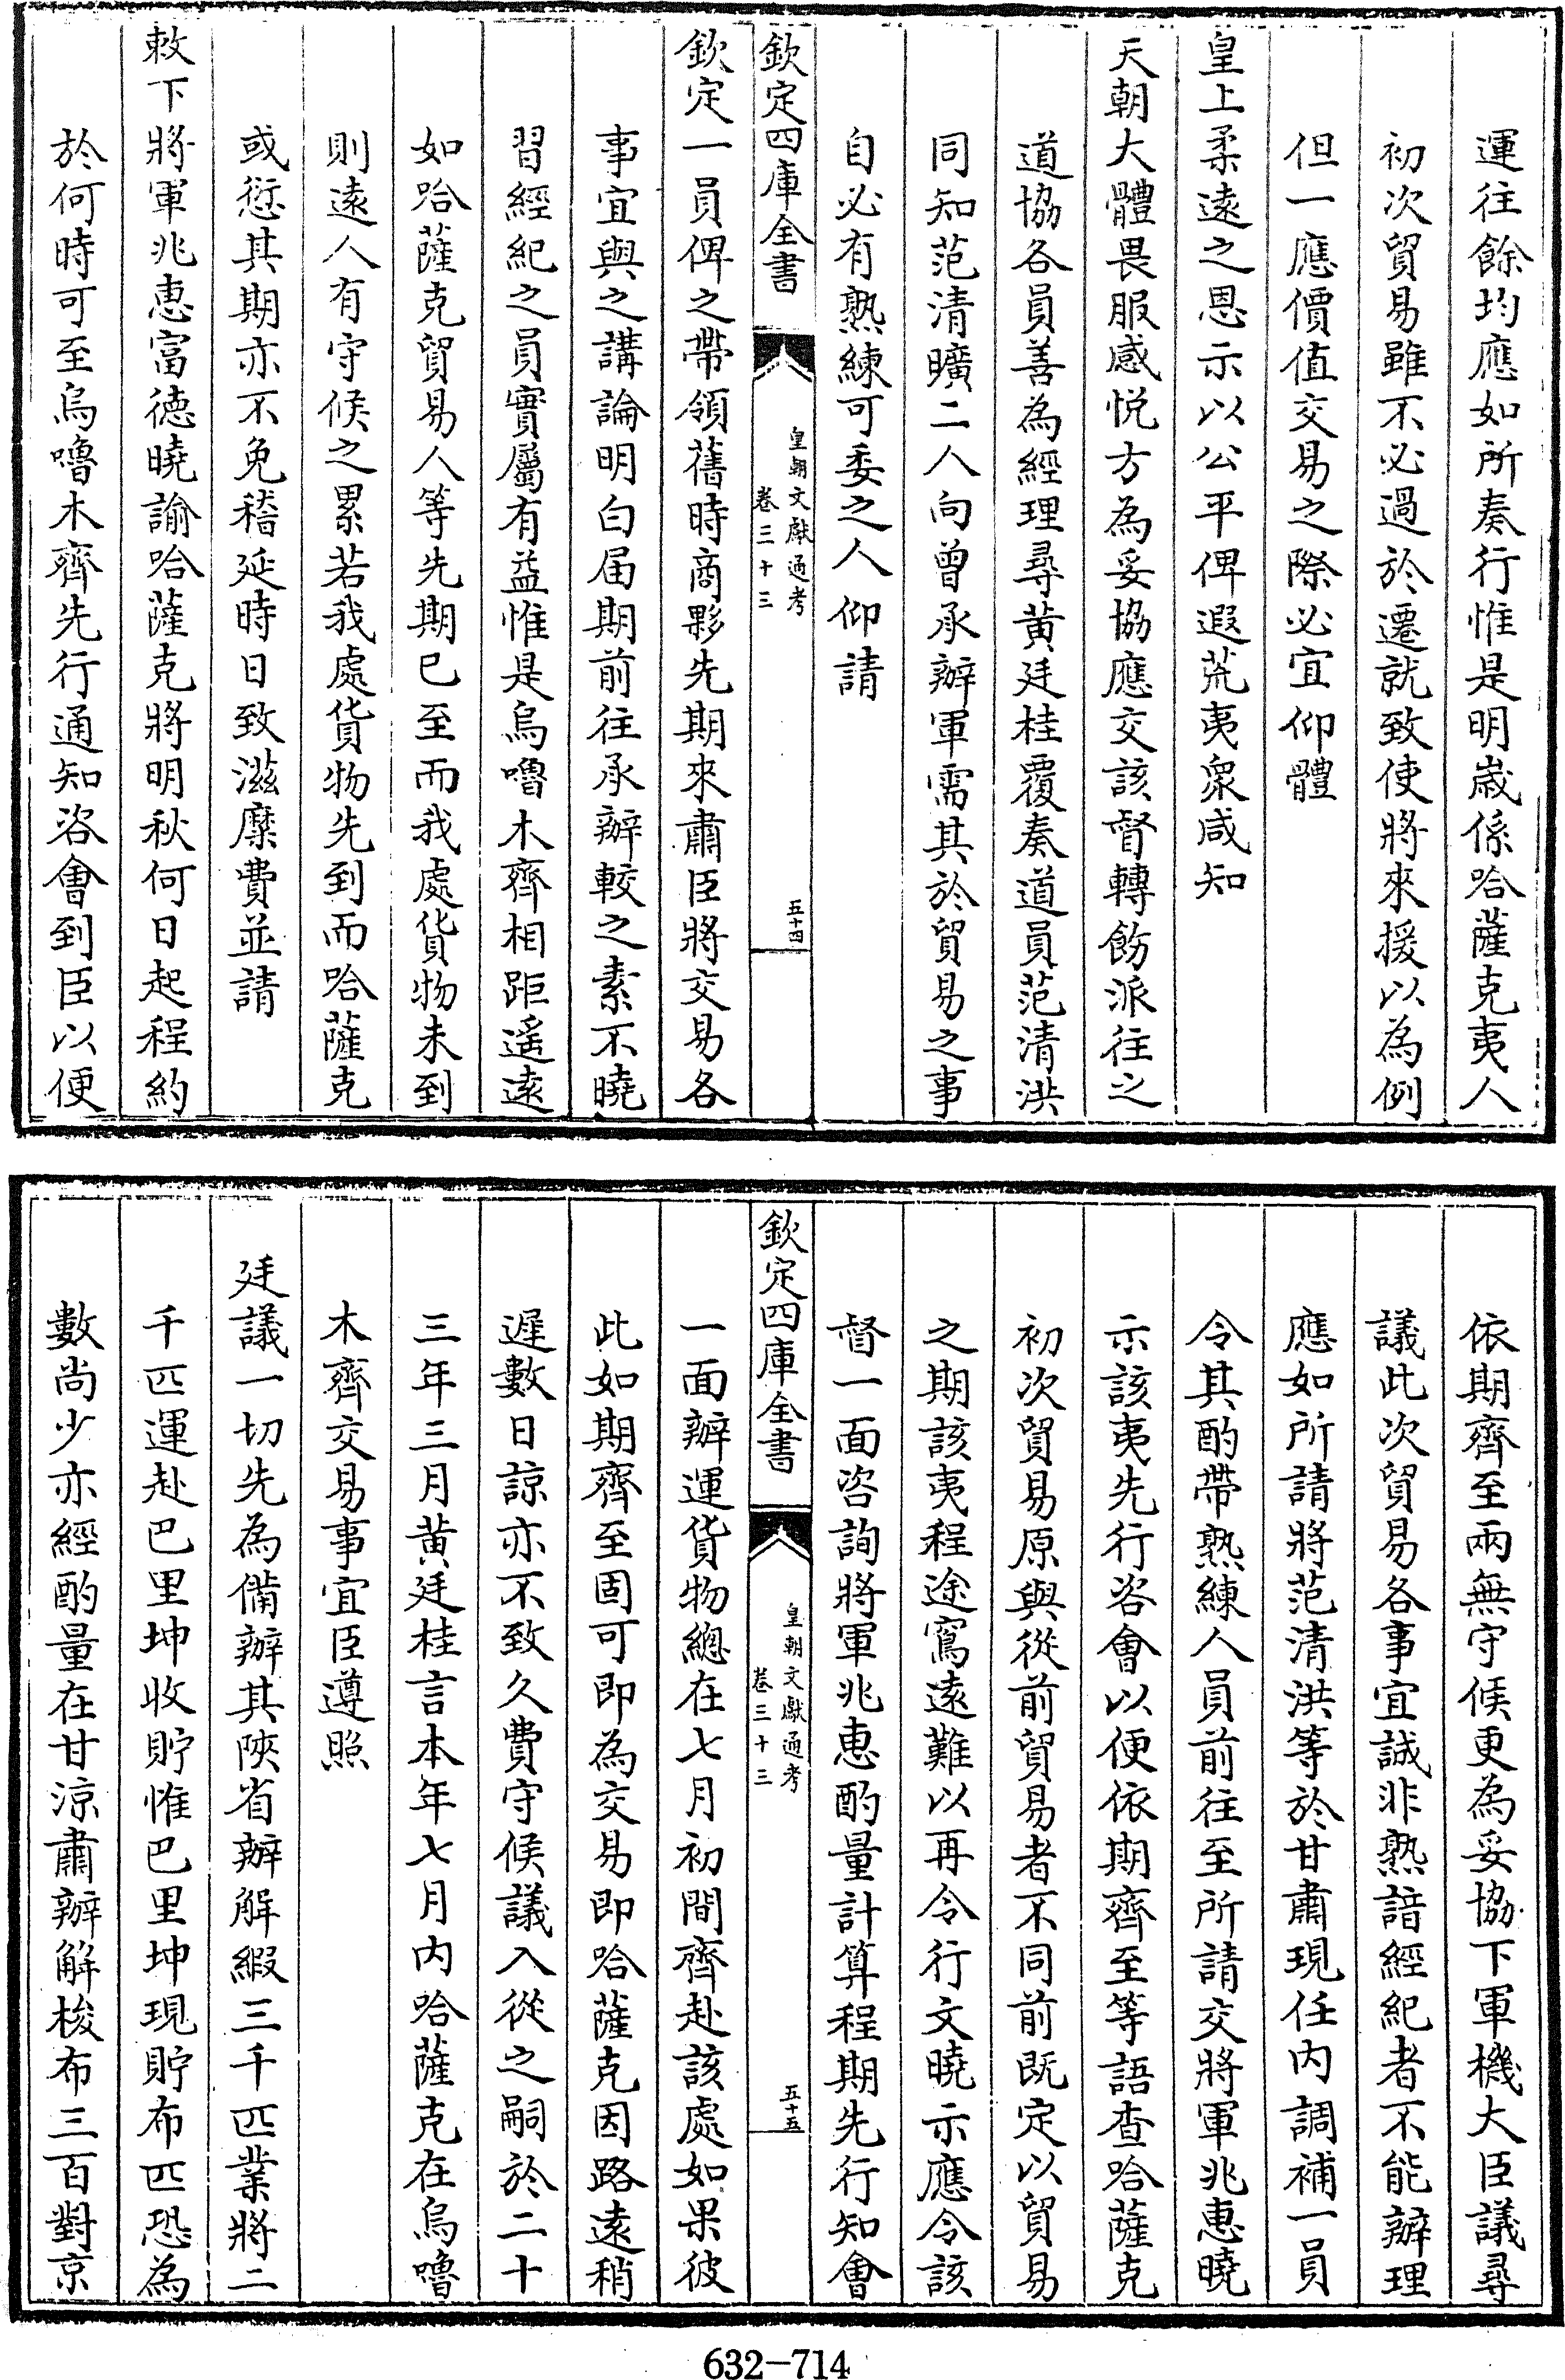 運往餘均應如所奏行惟是明嵗係哈薩克夷人
初次貿易雖不必過於遷就致使將來援以為例
但一應價值交易之際必宜仰體
皇上柔逺之恩示以公平俾遐荒夷衆咸知
天朝大體畏服感悦方為妥協應交該督轉飭派往之
道協各員善為經理尋黄廷桂覆奏道員范清洪
同知范清曠二人向曾承辦軍需其於貿易之事
自必有熟練可委之人仰請
欽定四庫全書
皇朝文獻通考
卷三十三
五十四
欽定一員俾之帶領舊時商夥先期來肅臣將交易各
事宜與之講論明白届期前往承辦較之素不曉
習經紀之員實屬有益惟是烏嚕木齊相距遥逺
如哈薩克貿易人等先期已至而我處貨物未到
則逺人有守候之累若我處貨物先到而哈薩克
或愆其期亦不免稽延時日致滋糜費並請
敕下將軍兆惠富徳曉諭哈薩克將明秋何日起程約
於何時可至烏嚕木齊先行通知咨會到臣以便
依期齊至兩無守候更為妥協下軍機大臣議尋
議此次貿易各事宜誠非熟諳經紀者不能辦理
應如所請將范清洪等於甘肅現任内調補一員
令其酌帶熟練人員前往至所請交將軍兆惠曉
示該夷先行咨會以便依期齊至等語查哈薩克
初次貿易原與從前貿易者不同前既定以貿易
之期該夷程途寫逺難以再令行文曉示應令該
督一面咨詢將軍兆惠酌量計算程期先行知會
欽定四庫全書
皇朝文獻通考
卷三十三
五十五
一面辦運貨物總在七月初間齊赴該處如果彼
此如期齊至固可即為交易即哈薩克因路逺稍
遲數日諒亦不致久費守候議入從之嗣於二十
三年三月黄廷桂言本年七月内哈薩克在烏嚕
木齊交易事宜臣遵照
廷議一切先為備辦其陜省辦解緞三千匹業將二
千匹運赴巴里坤收貯惟巴里坤現貯布匹恐為
數尚少亦經酌量在甘涼肅辦解梭布三百對京
632-714